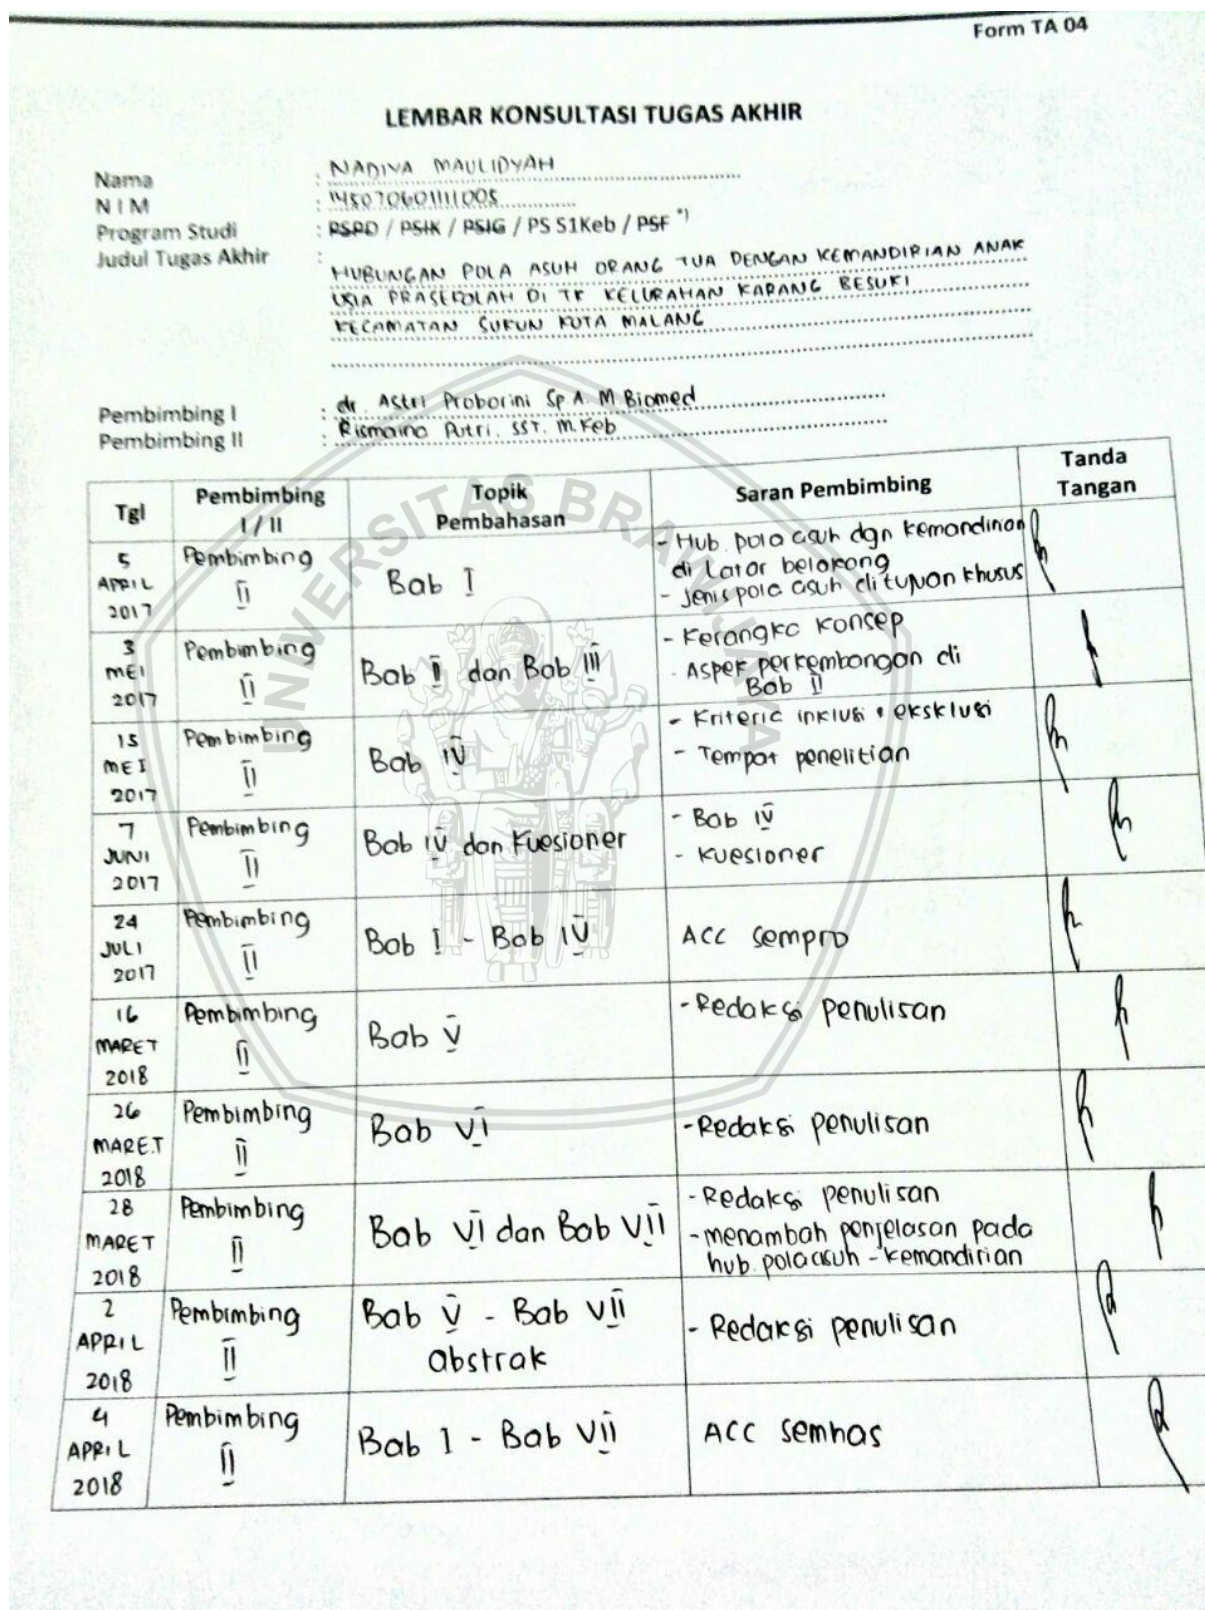 Form TA 04
LEMBAR KONSULTASI TUGAS AKHIR
Nama : NADIYA MAULIDYAH
NIM : 145070601111005
Program Studi : PSPD / PSIK / PSIG / PS S1Keb / PSF *)
Judul Tugas Akhir :
HUBUNGAN POLA ASUH ORANG TUA DENGAN KEMANDIRIAN ANAK
USIA PRASEKOLAH DI TK KELURAHAN KARANG BESUKI
KECAMATAN SUKUN KOTA MALANG
Pembimbing I : dr. Astri Proborini Sp A. M Biomed
Pembimbing II : Rismaina Putri, SST. M. Keb
Tgl
Pembimbing
I / II
Topik
Pembahasan
Saran Pembimbing
Tanda
Tangan
5
APRIL
2017
Pembimbing
II
Bab I
- Hub. pola asuh dgn kemandirian
di Latar belakang
- Jenis pola asuh di tujuan khusus
3
MEI
2017
Pembimbing
II
Bab II dan Bab III
- Kerangka Konsep
- Aspek perkembangan di
Bab II
15
MEI
2017
Pembimbing
II
Bab IV
- Kriteria inklusi & eksklusi
- Tempat penelitian
7
JUNI
2017
Pembimbing
II
Bab IV dan Kuesioner
- Bab IV
- Kuesioner
24
JULI
2017
Pembimbing
II
Bab I - Bab IV
ACC sempro
16
MARET
2018
Pembimbing
II
Bab V
- Redaksi penulisan
26
MARET
2018
Pembimbing
II
Bab VI
- Redaksi penulisan
28
MARET
2018
Pembimbing
II
Bab VI dan Bab VII
- Redaksi penulisan
- menambah penjelasan pada
hub. pola asuh - kemandirian
2
APRIL
2018
Pembimbing
II
Bab V - Bab VII
abstrak
- Redaksi penulisan
4
APRIL
2018
Pembimbing
II
Bab I - Bab VII
ACC semhas
UNIVERSITAS BRAWIJAYA